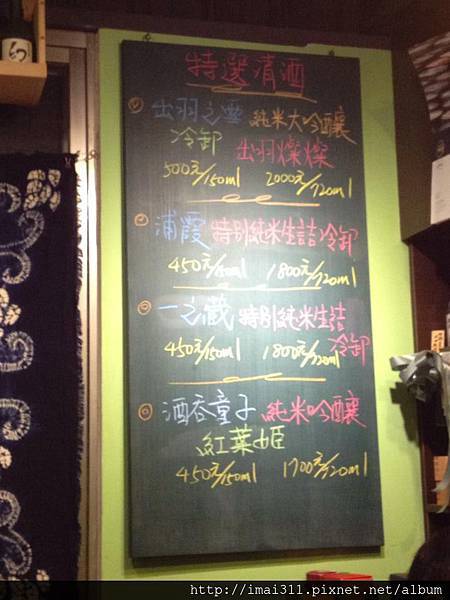 特選清酒
出羽之雪 純米大吟釀
冷卸 出羽燦燦
500元/150ml 2000元/720ml
浦霞 特別純米生詰冷卸
450元/150ml 1800元/720ml
一之蔵 特別純米生詰
冷卸
450元/150ml 1800元/720ml
酒呑童子 純米吟釀
紅葉姫
450元/150ml 1700元/720ml
http://imai311.pixnet.net/album